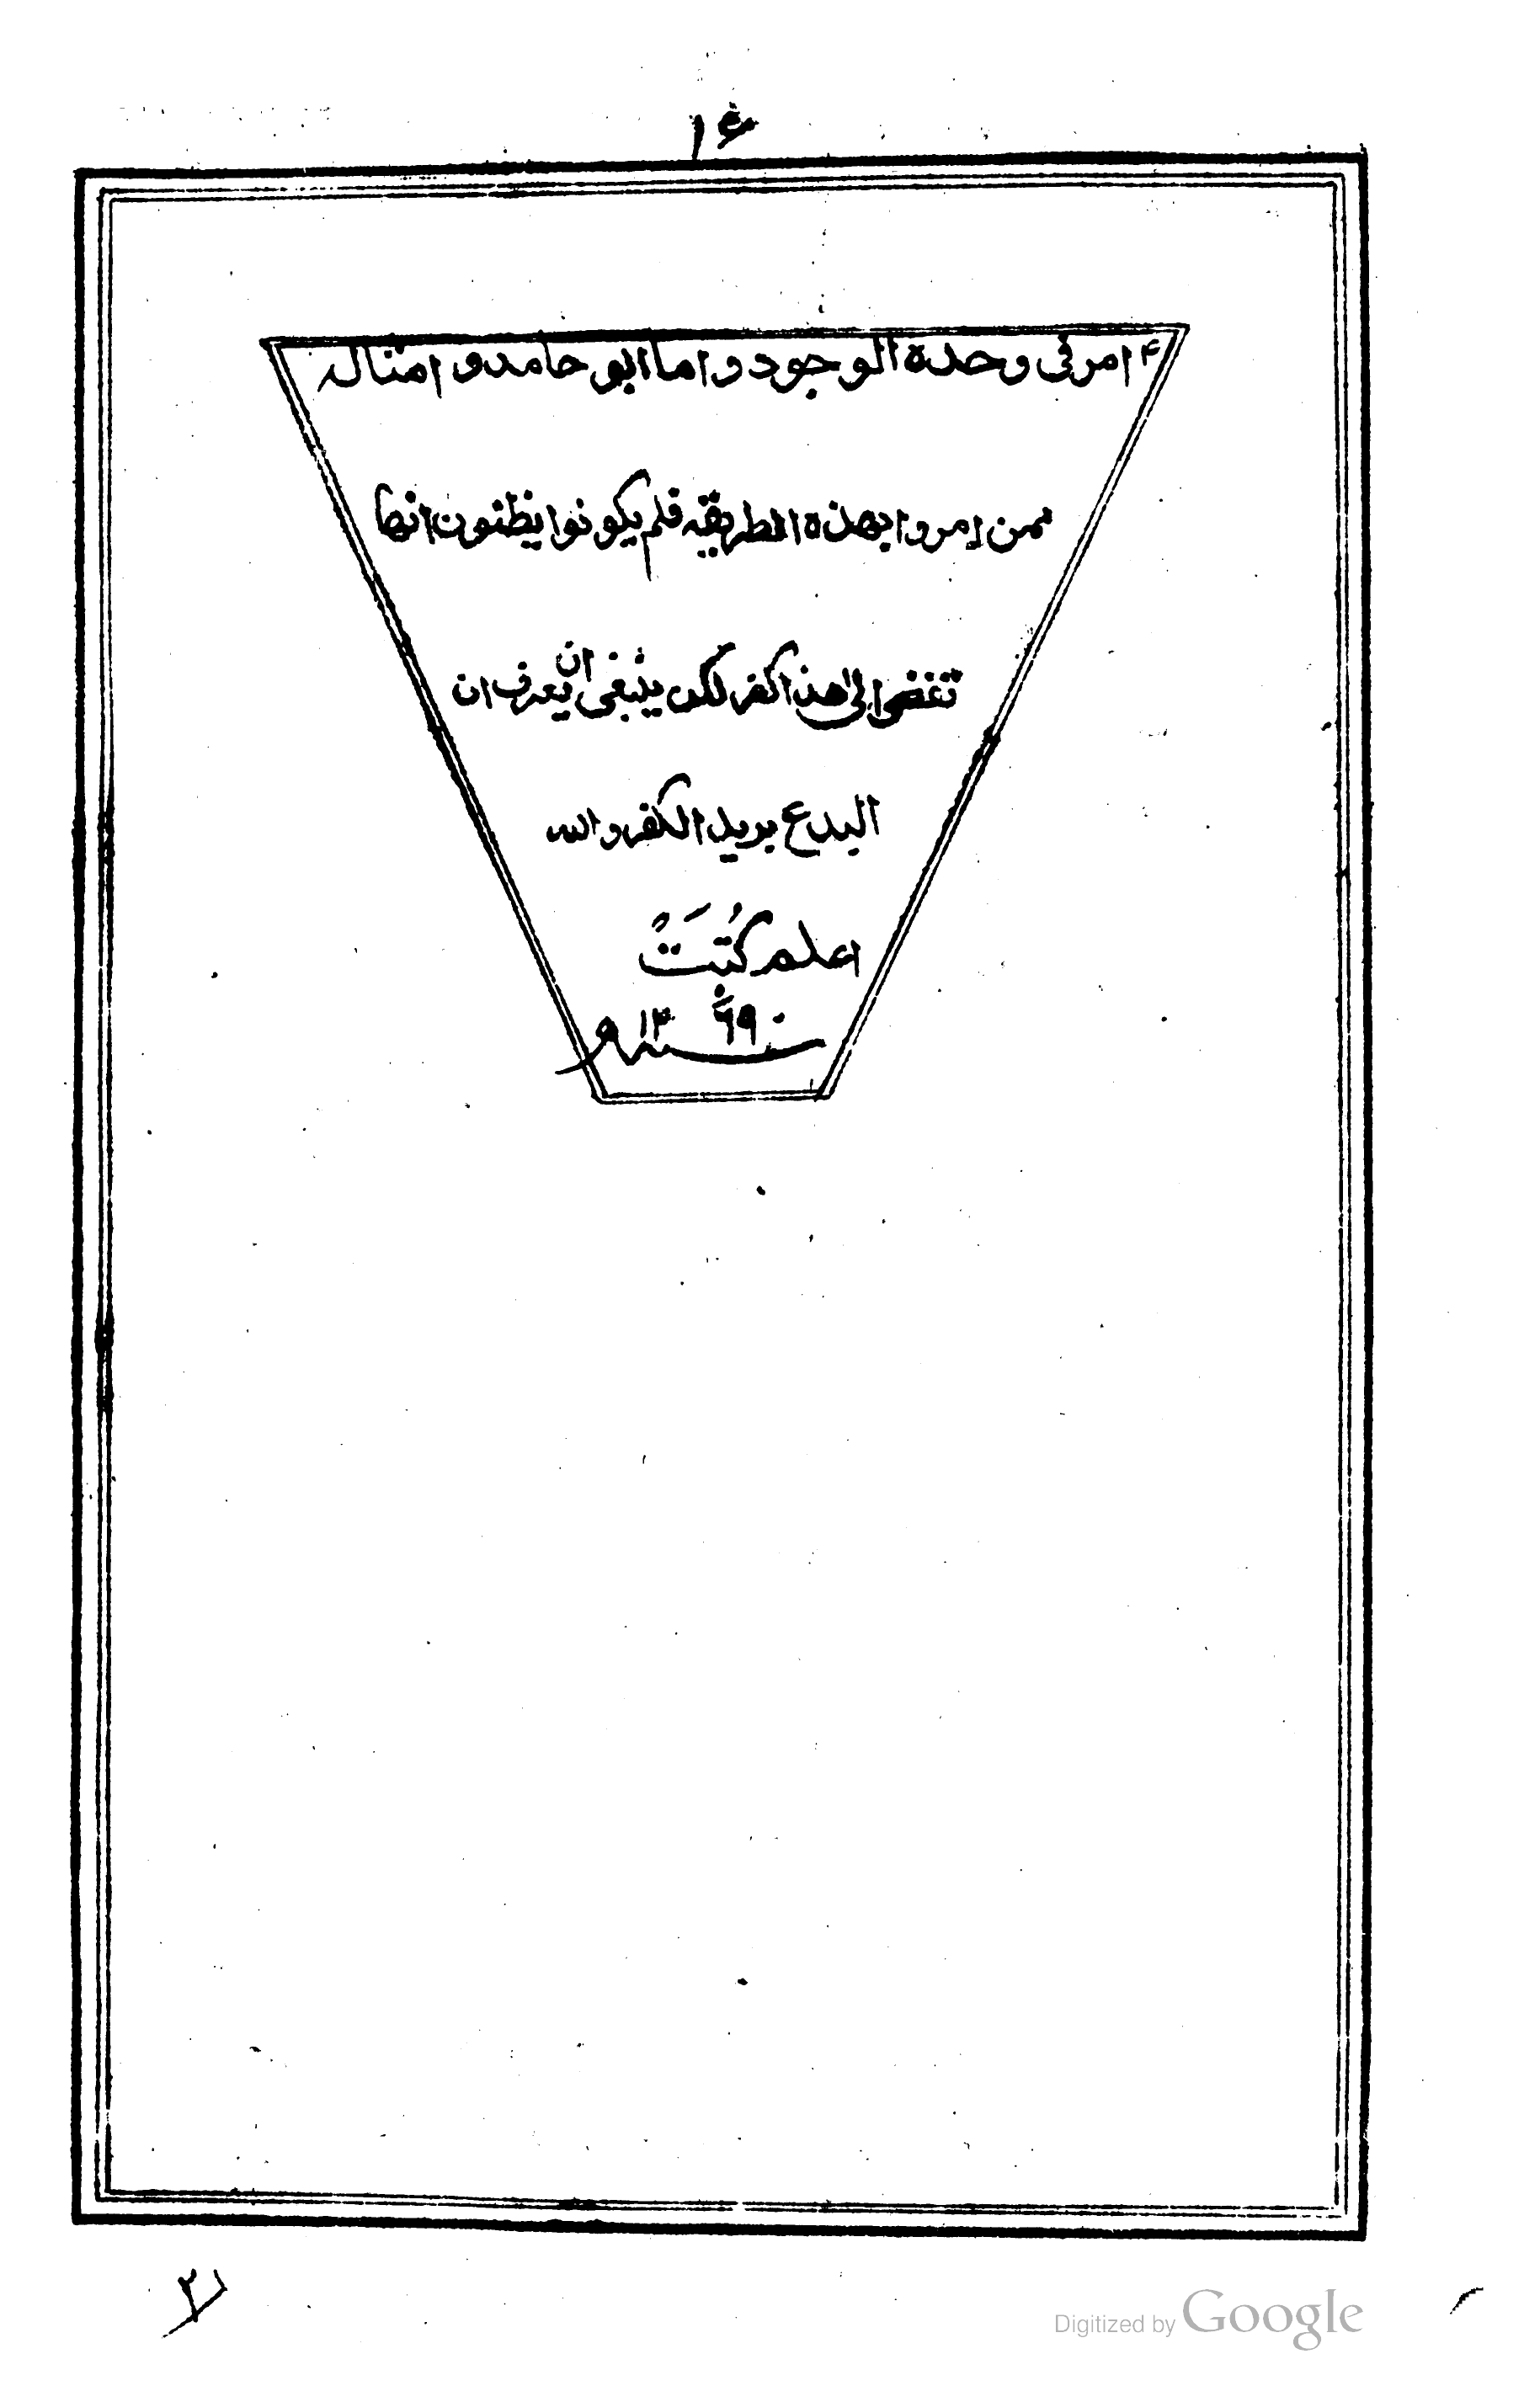 ١٤
امر في وحدة الوجود واما ابو حامد و امثاله
ممن امروا بهذه الطريقه فلم يكونوا يظنون انها
تفضي الى هذا الكفر لكن ينبغي ان يعرف ان
البدع بريد الكفر والله
اعلم كُتِبَتْ
سنه ١٣٦٩
Digitized by Google